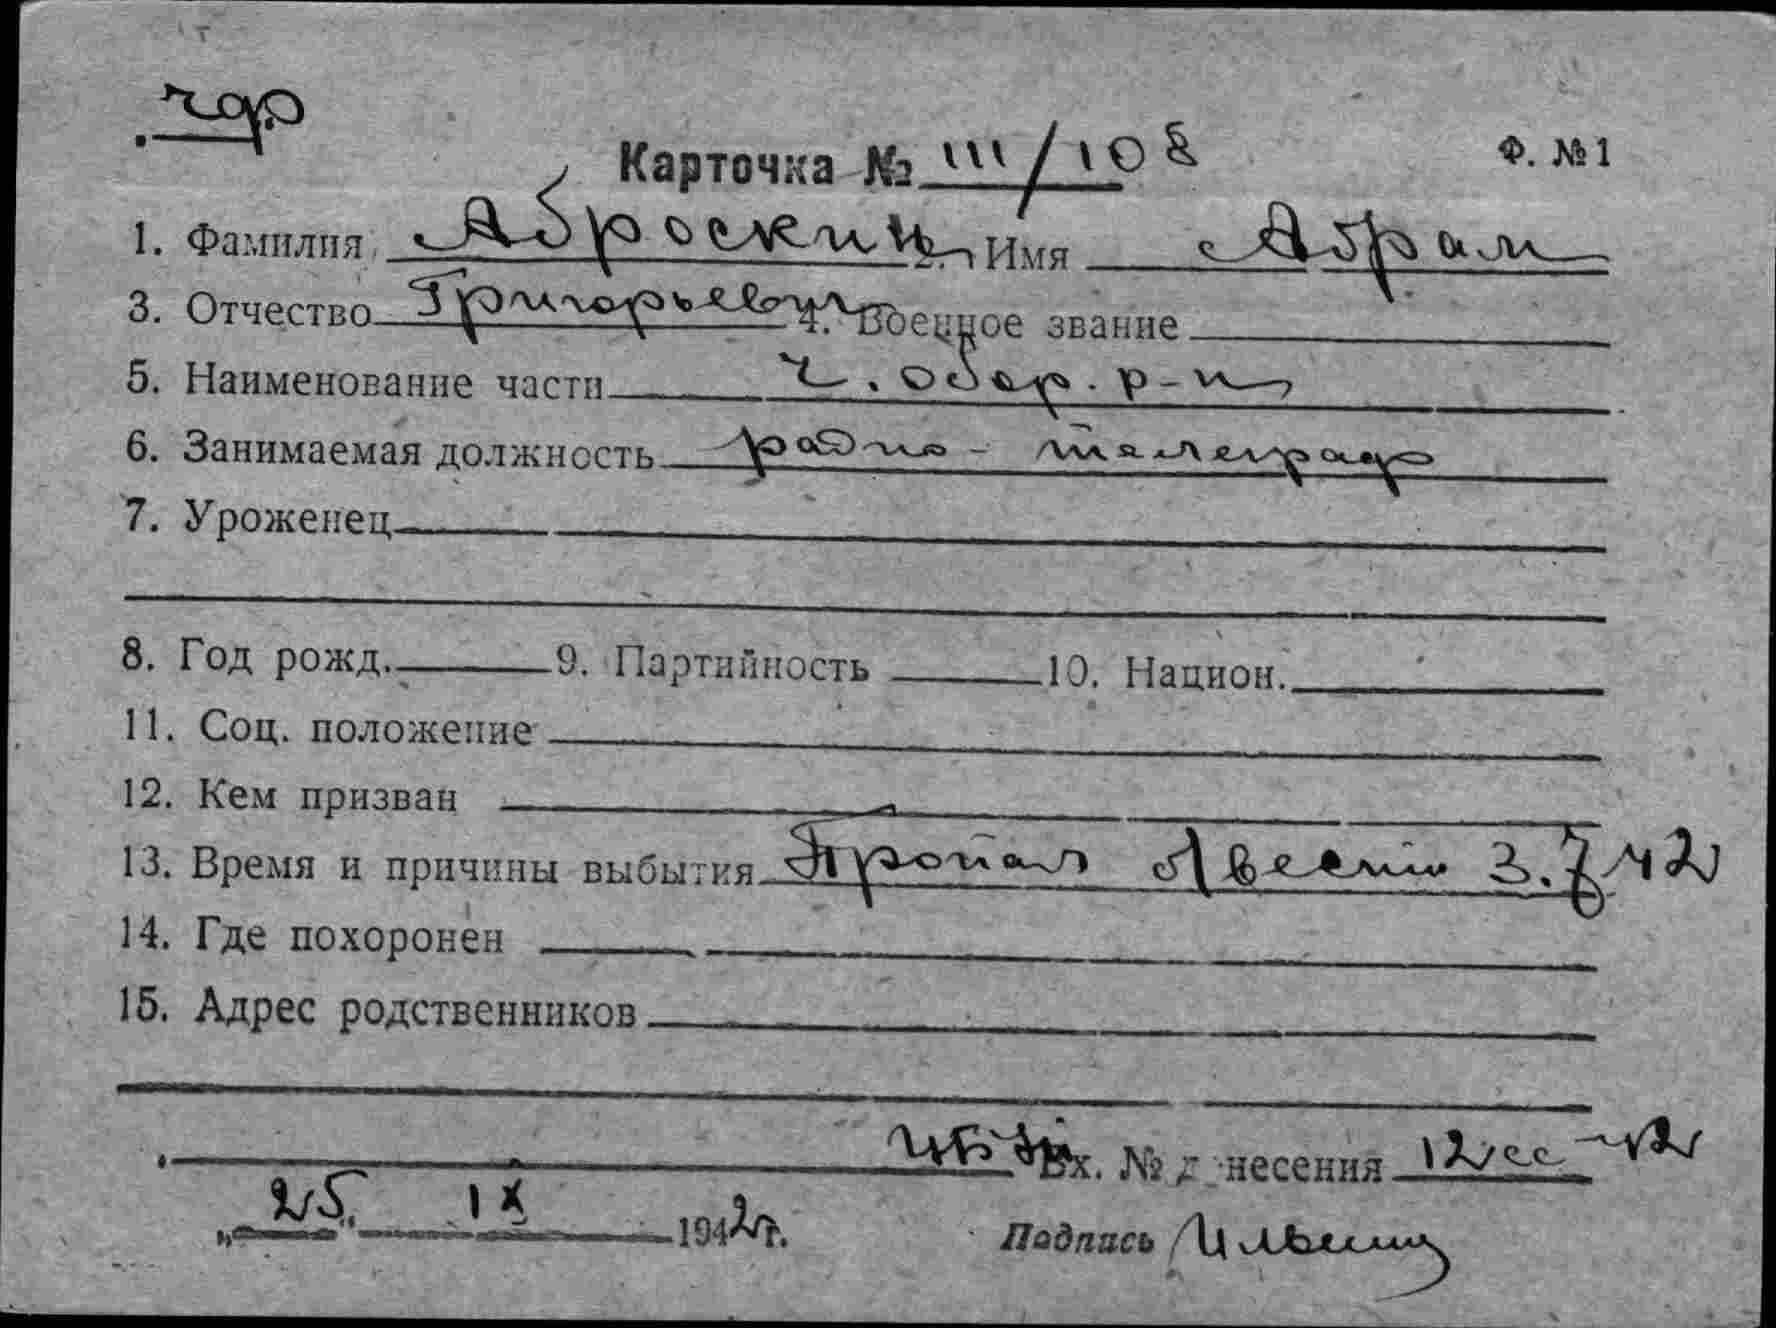 Карточка № III/108 Ф. №1
1. Фамилия Аброскин 2. Имя Абрам
3. Отчество Григорьевич 4. Военное звание
5. Наименование части Ч. обор. р-н
6. Занимаемая должность радио-телеграф
7. Уроженец
8. Год рожд. 9. Партийность 10. Национ.
11. Соц. положение
12. Кем призван
13. Время и причины выбытия Пропал без вести 3.7.42
14. Где похоронен
15. Адрес родственников
Вх. № донесения 12 сс-42
„25" IX 1942 г. Подпись Ильин